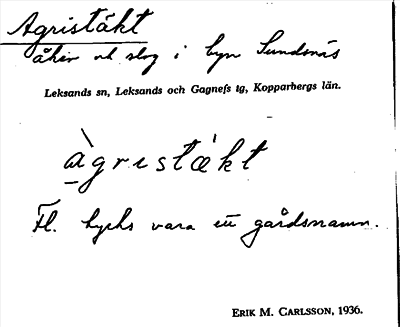 Agristäkt
åker och slog i byn Sundsnäs
Leksands sn, Leksands och Gagnefs tg, Kopparbergs län.
àgristǽkt
Fl. tycks vara ett gårdsnamn.
ERIK M. CARLSSON, 1936.